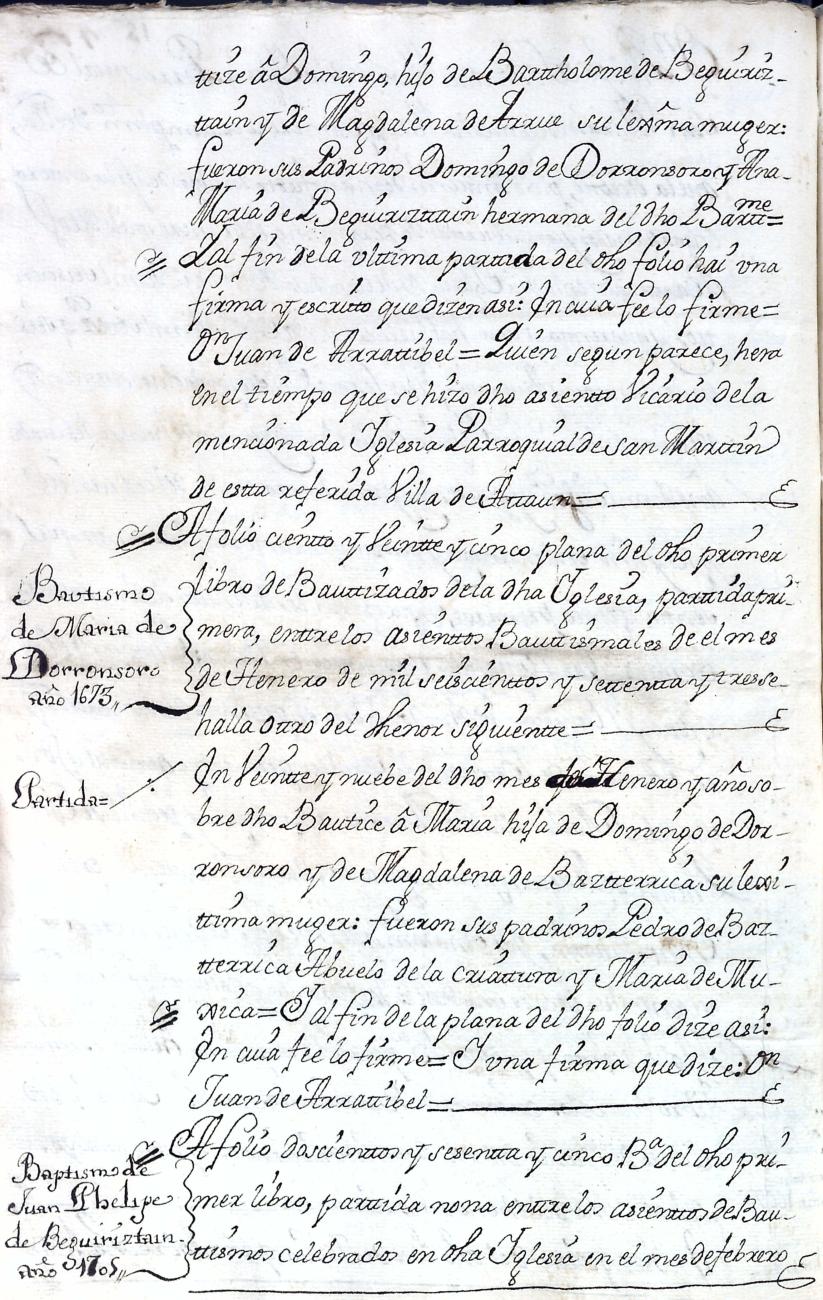 ttize â Domingo, hijo de Barttholome de Beguiriz-
ttain y de Magdalena de Arrue su lexma muger:
fueron sus Padrinos Domingo de Dorronsoro y Ana
Maria de Beguirizttain hermana del dho Barttme=
Ial fin de la vlttima parttida del dho folio hai vna
firma y escritto que dizen asi: In cuia fee lo firme=
Dn Juan de Arrattibel= Quien segun parece, hera
en el tiempo que se hizo dho asientto Vicario de la
mencionada Iglesia Parroquial de San Marttin
de estta referida Villa de Attaun=
A folio cientto y Veintte y cinco plana del dho primer
Bautismo
de Maria de
Dorronsoro
año 1673,,
libro de Bauttizados de la dha Iglesia, parttida pri-
mera, enttre los asienttos Bauttismales de el mes
de Henero de mil seiscienttos y settentta y tres se
halla ottro del thenor siguientte=
Partida=
In Veintte y nuebe del dho mes de Henero y año so-
bre dho Bautice â Maria hija de Domingo de Dor-
ronsoro y de Magdalena de Baztterrica su lexi-
ttima muger: fueron sus padrinos Pedro de Baz-
tterrica Abuelo de la criattura y Maria de Mu-
xica= I al fin de la plana del dho folio dize asi:
In cuia fee lo firme= I vna firma que dize: Dn
Juan de Arrattibel=
Baptismo de
Juan Phelipe
de Beguiriztain
año 1705,,
A folio doscienttos y sesentta y cinco Ba del dho pri-
mer libro, parttida nona enttre los asienttos de Bau-
ttismos celebrados en dha Iglesia en el mes de febrero